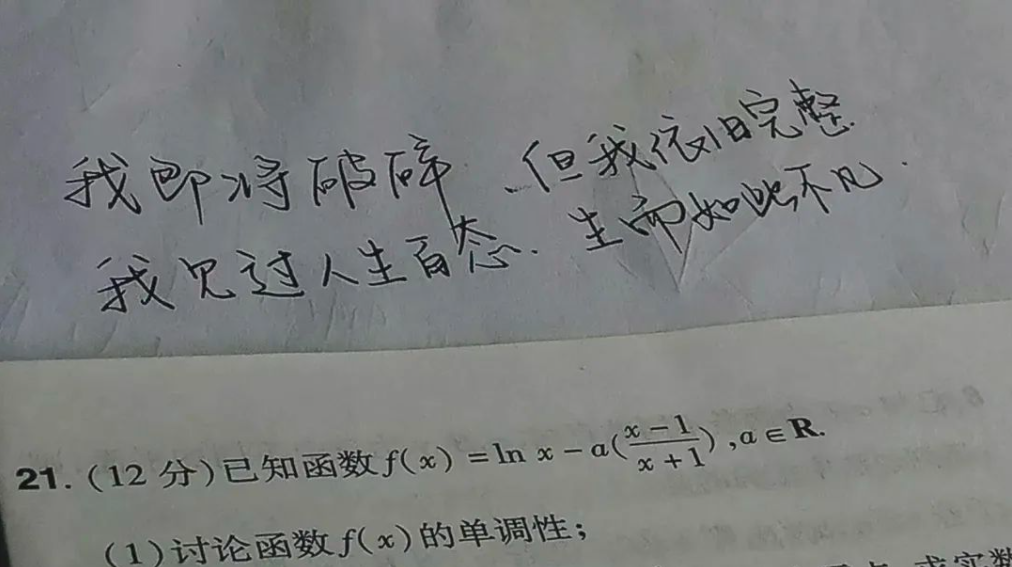 我即将破碎、但我依旧完整.
我见过人生百态. 生而如此不凡.
21. (12 分)已知函数 f(x) = ln x − a(\frac{x − 1}{x + 1}) ,a ∈ R.
(1)讨论函数 f(x)的单调性;
求实数